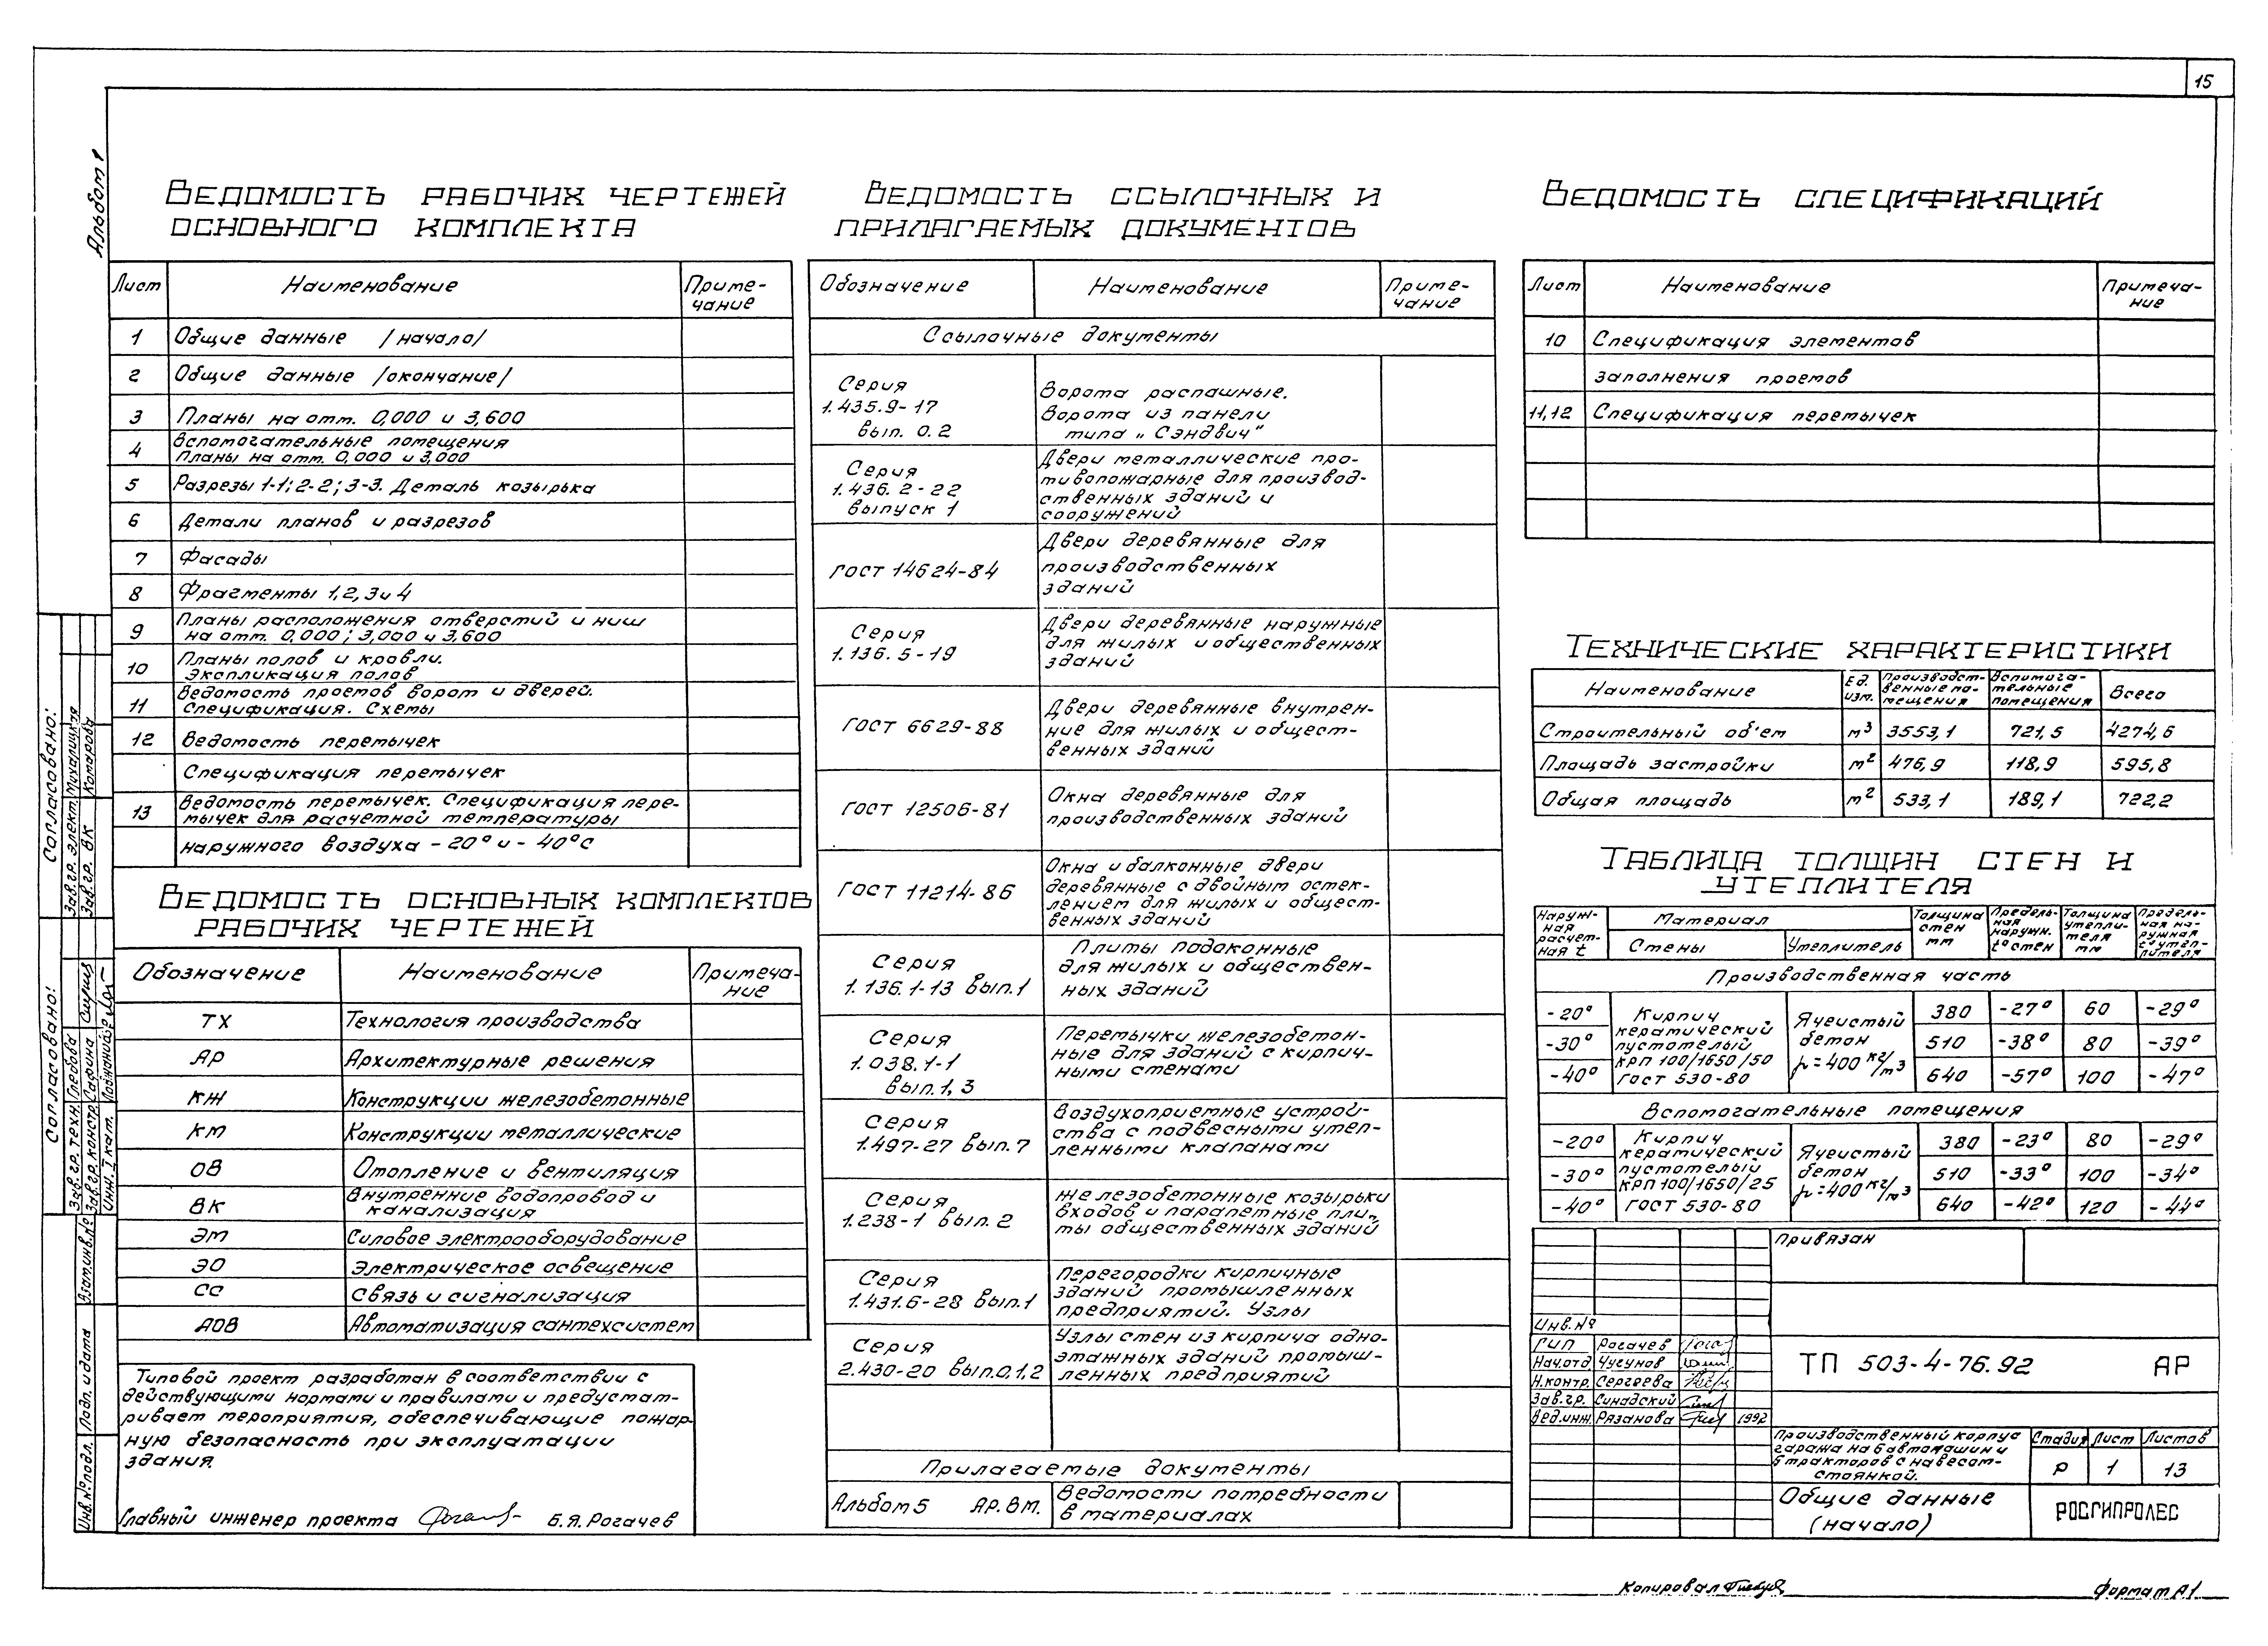 15
Альбом 1
ВЕДОМОСТЬ РАБОЧИХ ЧЕРТЕЖЕЙ
ОСНОВНОГО КОМПЛЕКТА
Лист Наименование Приме-
чание
1 Общие данные /начало/
2 Общие данные /окончание/
3 Планы на отм. 0,000 и 3,600
4 Вспомогательные помещения
Планы на отм. 0,000 и 3,000
5 Разрезы 1-1; 2-2; 3-3. Деталь козырька
6 Детали планов и разрезов
7 Фасады
8 Фрагменты 1, 2, 3 и 4
9 Планы расположения отверстий и ниш
на отм. 0,000; 3,000 и 3,600
10 Планы полов и кровли.
Экспликация полов
11 Ведомость проемов ворот и дверей.
Спецификация. Схемы
12 Ведомость перемычек
Спецификация перемычек
13 Ведомость перемычек. Спецификация пере-
мычек для расчетной температуры
наружного воздуха -20° и -40°С
ВЕДОМОСТЬ ОСНОВНЫХ КОМПЛЕКТОВ
РАБОЧИХ ЧЕРТЕЖЕЙ
Обозначение Наименование Примеча-
ние
ТХ Технология производства
АР Архитектурные решения
КЖ Конструкции железобетонные
КМ Конструкции металлические
ОВ Отопление и вентиляция
ВК Внутренние водопровод и
канализация
ЭМ Силовое электрооборудование
ЭО Электрическое освещение
СС Связь и сигнализация
АОВ Автоматизация сантехсистем
Типовой проект разработан в соответствии с
действующими нормами и правилами и предусмат-
ривает мероприятия, обеспечивающие пожар-
ную безопасность при эксплуатации
здания.
Главный инженер проекта Б.Я.Рогачев
ВЕДОМОСТЬ ССЫЛОЧНЫХ И
ПРИЛАГАЕМЫХ ДОКУМЕНТОВ
Обозначение Наименование Приме-
чание
Ссылочные документы
Серия
1.435.9-17
вып. 0.2
Ворота распашные.
Ворота из панели
типа „Сэндвич"
Серия
1.436.2-22
выпуск 1
Двери металлические про-
тивопожарные для производ-
ственных зданий и
сооружений
ГОСТ 14624-84
Двери деревянные для
производственных
зданий
Серия
1.136.5-19
Двери деревянные наружные
для жилых и общественных
зданий
ГОСТ 6629-88
Двери деревянные внутрен-
ние для жилых и общест-
венных зданий
ГОСТ 12506-81
Окна деревянные для
производственных зданий
ГОСТ 11214-86
Окна и балконные двери
деревянные с двойным остек-
лением для жилых и общест-
венных зданий
Серия
1.136.1-13 вып.1
Плиты подоконные
для жилых и обществен-
ных зданий
Серия
1.038.1-1
вып.1,3
Перемычки железобетон-
ные для зданий с кирпич-
ными стенами
Серия
1.497-27 вып.7
Воздухоприемные устрой-
ства с подвесными утеп-
ленными клапанами
Серия
1.238-1 вып.2
Железобетонные козырьки
входов и парапетные пли-
ты общественных зданий
Серия
1.431.6-28 вып.1
Перегородки кирпичные
зданий промышленных
предприятий. Узлы
Серия
2.430-20 вып.0,1,2
Узлы стен из кирпича одно-
этажных зданий промыш-
ленных предприятий
Прилагаемые документы
Альбом 5 АР.ВМ.
Ведомости потребности
в материалах
ВЕДОМОСТЬ СПЕЦИФИКАЦИЙ
Лист Наименование Примеча-
ние
10 Спецификация элементов
заполнения проемов
11,12 Спецификация перемычек
ТЕХНИЧЕСКИЕ ХАРАКТЕРИСТИКИ
Наименование
Ед.
изм.
Производст-
венные по-
мещения
Вспомога-
тельные
помещения
Всего
Строительный об'ем м³ 3553,1 721,5 4274,6
Площадь застройки м² 476,9 118,9 595,8
Общая площадь м² 533,1 189,1 722,2
ТАБЛИЦА ТОЛЩИН СТЕН И
УТЕПЛИТЕЛЯ
Наруж-
ная
расчет-
ная t
Материал
Стены Утеплитель
Толщина
стен
мм
Предель-
ная
наружн.
t° стен
Толщина
утепли-
теля
мм
Предель-
ная на-
ружная
с утеп-
лителя
Производственная часть
-20° 380 -27° 60 -29°
-30° 510 -38° 80 -39°
-40° 640 -57° 100 -47°
Кирпич
керамический
пустотелый
КРП 100/1650/50
ГОСТ 530-80
Ячеистый
бетон
γ=400 кг/м³
Вспомогательные помещения
-20° 380 -23° 80 -29°
-30° 510 -33° 100 -34°
-40° 640 -42° 120 -44°
Кирпич
керамический
пустотелый
КРП 100/1650/25
ГОСТ 530-80
Ячеистый
бетон
γ=400 кг/м³
Привязан
Инв.№
ГИП Рогачев
Нач.отд Чугунов
Н.контр. Сергеева
Зав.гр. Синадский
Вед.инж. Рязанова 1992
ТП 503-4-76.92 АР
Производственный корпус
гаража на 6 автомашин и
5 тракторов с навесом-
стоянкой.
Стадия Лист Листов
Р 1 13
Общие данные
(начало)
РОСГИПРОЛЕС
Копировал
Формат А1
Согласовано:
Зав.гр. элект.
Зав.гр. ВК Комарова
Согласовано:
Зав.гр. техн. Глебова
Зав.гр. констр. Сафина
Инж. I кат.
Взам.инв.№
Подп. и дата
Инв.№ подл.